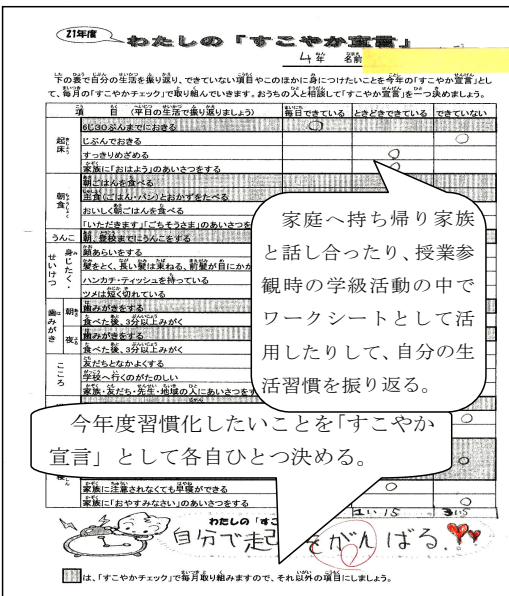 21年度
わたしの「すこやか宣言」
4年 名前
下の表で自分の生活を振り返り、できていない項目やこのほかに身につけたいことを今年の「すこやか宣言」とし
て、毎月の「すこやかチェック」で取り組んでいきます。おうちの人と相談して「すこやか宣言」を一つ決めましょう。
項 目 (平日の生活で振り返りましょう) 毎日できている ときどきできている できていない
起床
6じ30ぷんまでにおきる
じぶんでおきる
すっきりめざめる
家族に「おはよう」のあいさつをする
朝食
朝ごはんを食べる
主食(ごはん・パン)とおかずをたべる
おいしく朝ごはんを食べる
「いただきます」「ごちそうさま」のあいさつを
うんこ 朝、登校までにうんこをする
身じたく・せいけつ
顔あらいをする
髪をとく、長い髪は束ねる、前髪が目にかか
ハンカチ・ティッシュを持っている
ツメは短く切れている
歯みがき
朝 歯みがきをする
食べた後、3分以上みがく
夜 歯みがきをする
食べた後、3分以上みがく
こころ
友だちとなかよくする
学校へ行くのがたのしい
家族・友だち・先生・地域の人にあいさつをす
家庭へ持ち帰り家族
と話し合ったり、授業参
観時の学級活動の中で
ワークシートとして活
用したりして、自分の生
活習慣を振り返る。
今年度習慣化したいことを「すこやか
宣言」として各自ひとつ決める。
家族に注意されなくても早寝ができる
家族に「おやすみなさい」のあいさつをする
わたしの「すこ
自分で起 をがんばる。
は、「すこやかチェック」で毎月取り組みますので、それ以外の項目にしましょう。